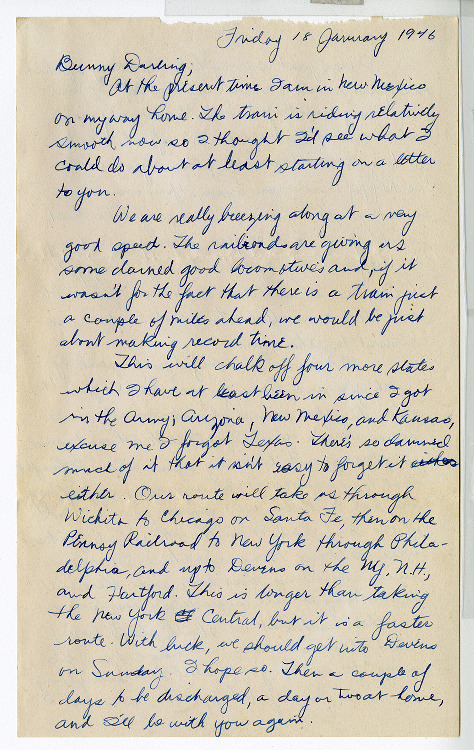 Friday 18 January 1946
Bunny Darling,
At the present time I am in New Mexico
on my way home. The train is riding relatively
smooth now so I thought I'd see what I
could do about at least starting on a letter
to you.
We are really breezing along at a very
good speed. The railroads are giving us
some darned good locomotives and, if it
wasn't for the fact that there is a train just
a couple of miles ahead, we would be just
about making record time.
This will chalk off four more states
which I have at least been in since I got
in the Army; Arizona, New Mexico, and Kansas,
excuse me I forgot Texas. There's so damned
much of it that it isn't easy to forget it either
either. Our route will take us through
Wichita to Chicago on Santa Fe, then on the
Pennsy Railroad to New York through Phila-
delphia, and up to Devens on the NY, N.H.,
and Hartford. This is longer than taking
the New York Central, but it is a faster
route. With luck, we should get into Devens
on Sunday. I hope so. Then a couple of
days to be discharged, a day or two at home,
and I'll be with you again.